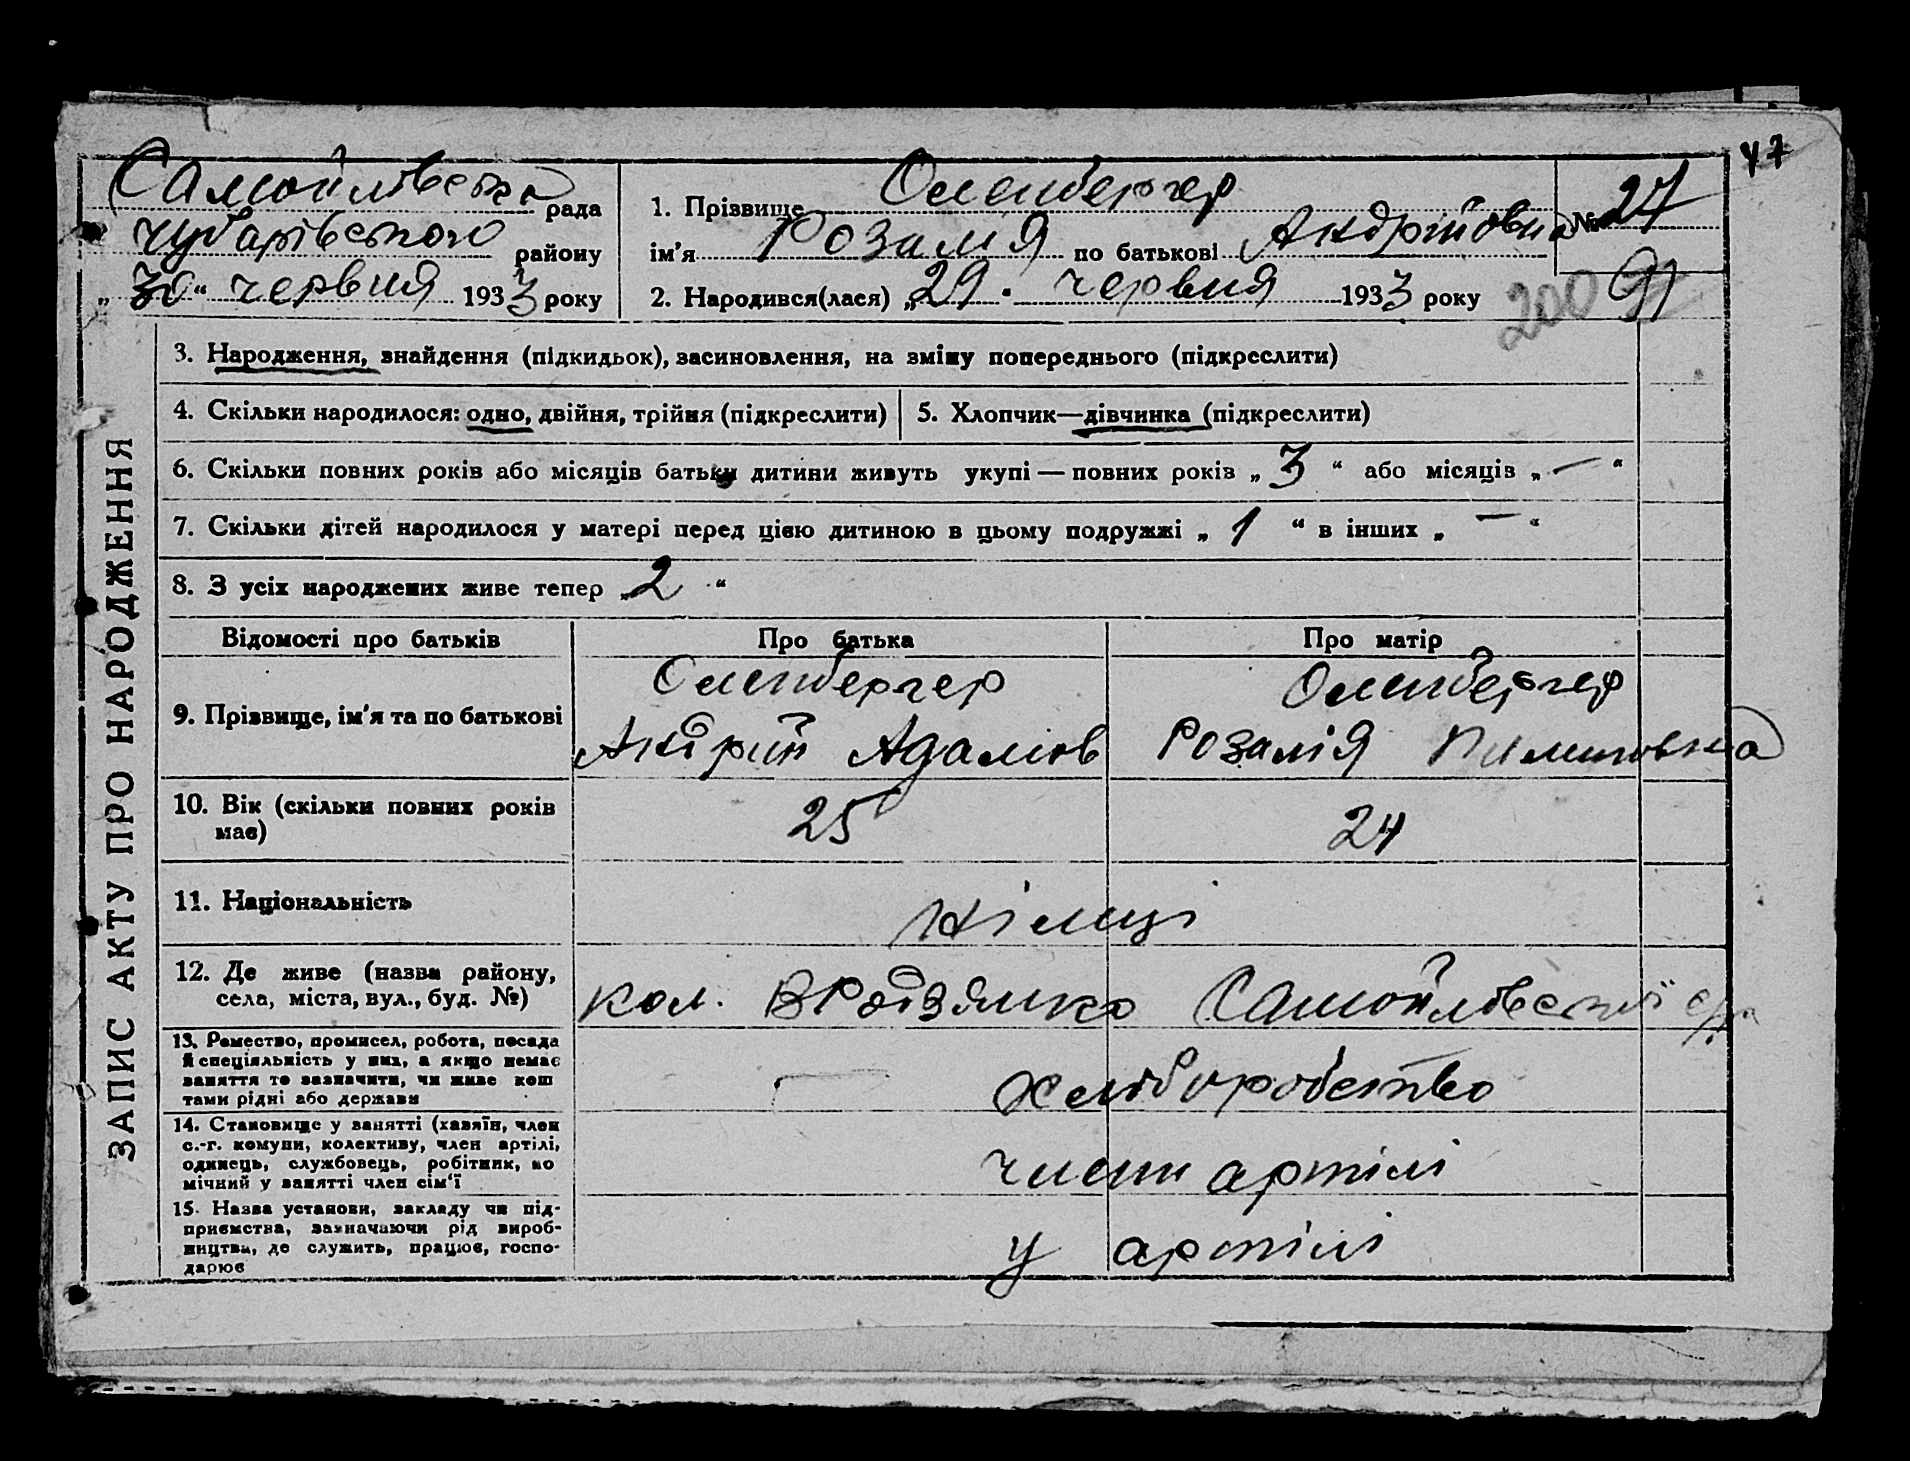 47
Самойлівська рада
Чубарівського району
„30“ червня 1933 року
1. Прізвище Оленбергер
ім'я Розалія по батькові Андрійовна
2. Народився(лася) „29. червня 1933 року
№ 27
200 91
ЗАПИС АКТУ ПРО НАРОДЖЕННЯ
3. Народження, знайдення (підкидьок), засиновлення, на зміну попереднього (підкреслити)
4. Скільки народилося: одно, двійня, трійня (підкреслити)
5. Хлопчик—дівчинка (підкреслити)
6. Скільки повних років або місяців батьки дитини живуть укупі — повних років „ 3 “ або місяців „ — “
7. Скільки дітей народилося у матері перед цією дитиною в цьому подружжі „ 1 “ в інших „ — “
8. З усіх народжених живе тепер „ 2 “
Відомості про батьків
Про батька
Про матір
9. Прізвище, ім'я та по батькові
Оленбергер
Андрій Адамов
Оленбергер
Розалія
10. Вік (скільки повних років
має)
25
24
11. Національність
німці
12. Де живе (назва району,
села, міста, вул., буд. №)
кол. Самойлівської с/р
13. Ремество, промисел, робота, посада
й спеціяльність у них, а якщо немає
заняття то зазначити, чи живе кош
тами рідні або держави
— хліборобство
14. Становище у занятті (хазяїн, член
с.-г. комуни, колективу, член артілі,
одинець, службовець, робітник, по
мічний у занятті член сім'ї
члени артілі
15. Назва установи, закладу чи під-
приємства, зазначаючи рід вироб-
ництва, де служить, працює, госпо-
дарює
у артілі